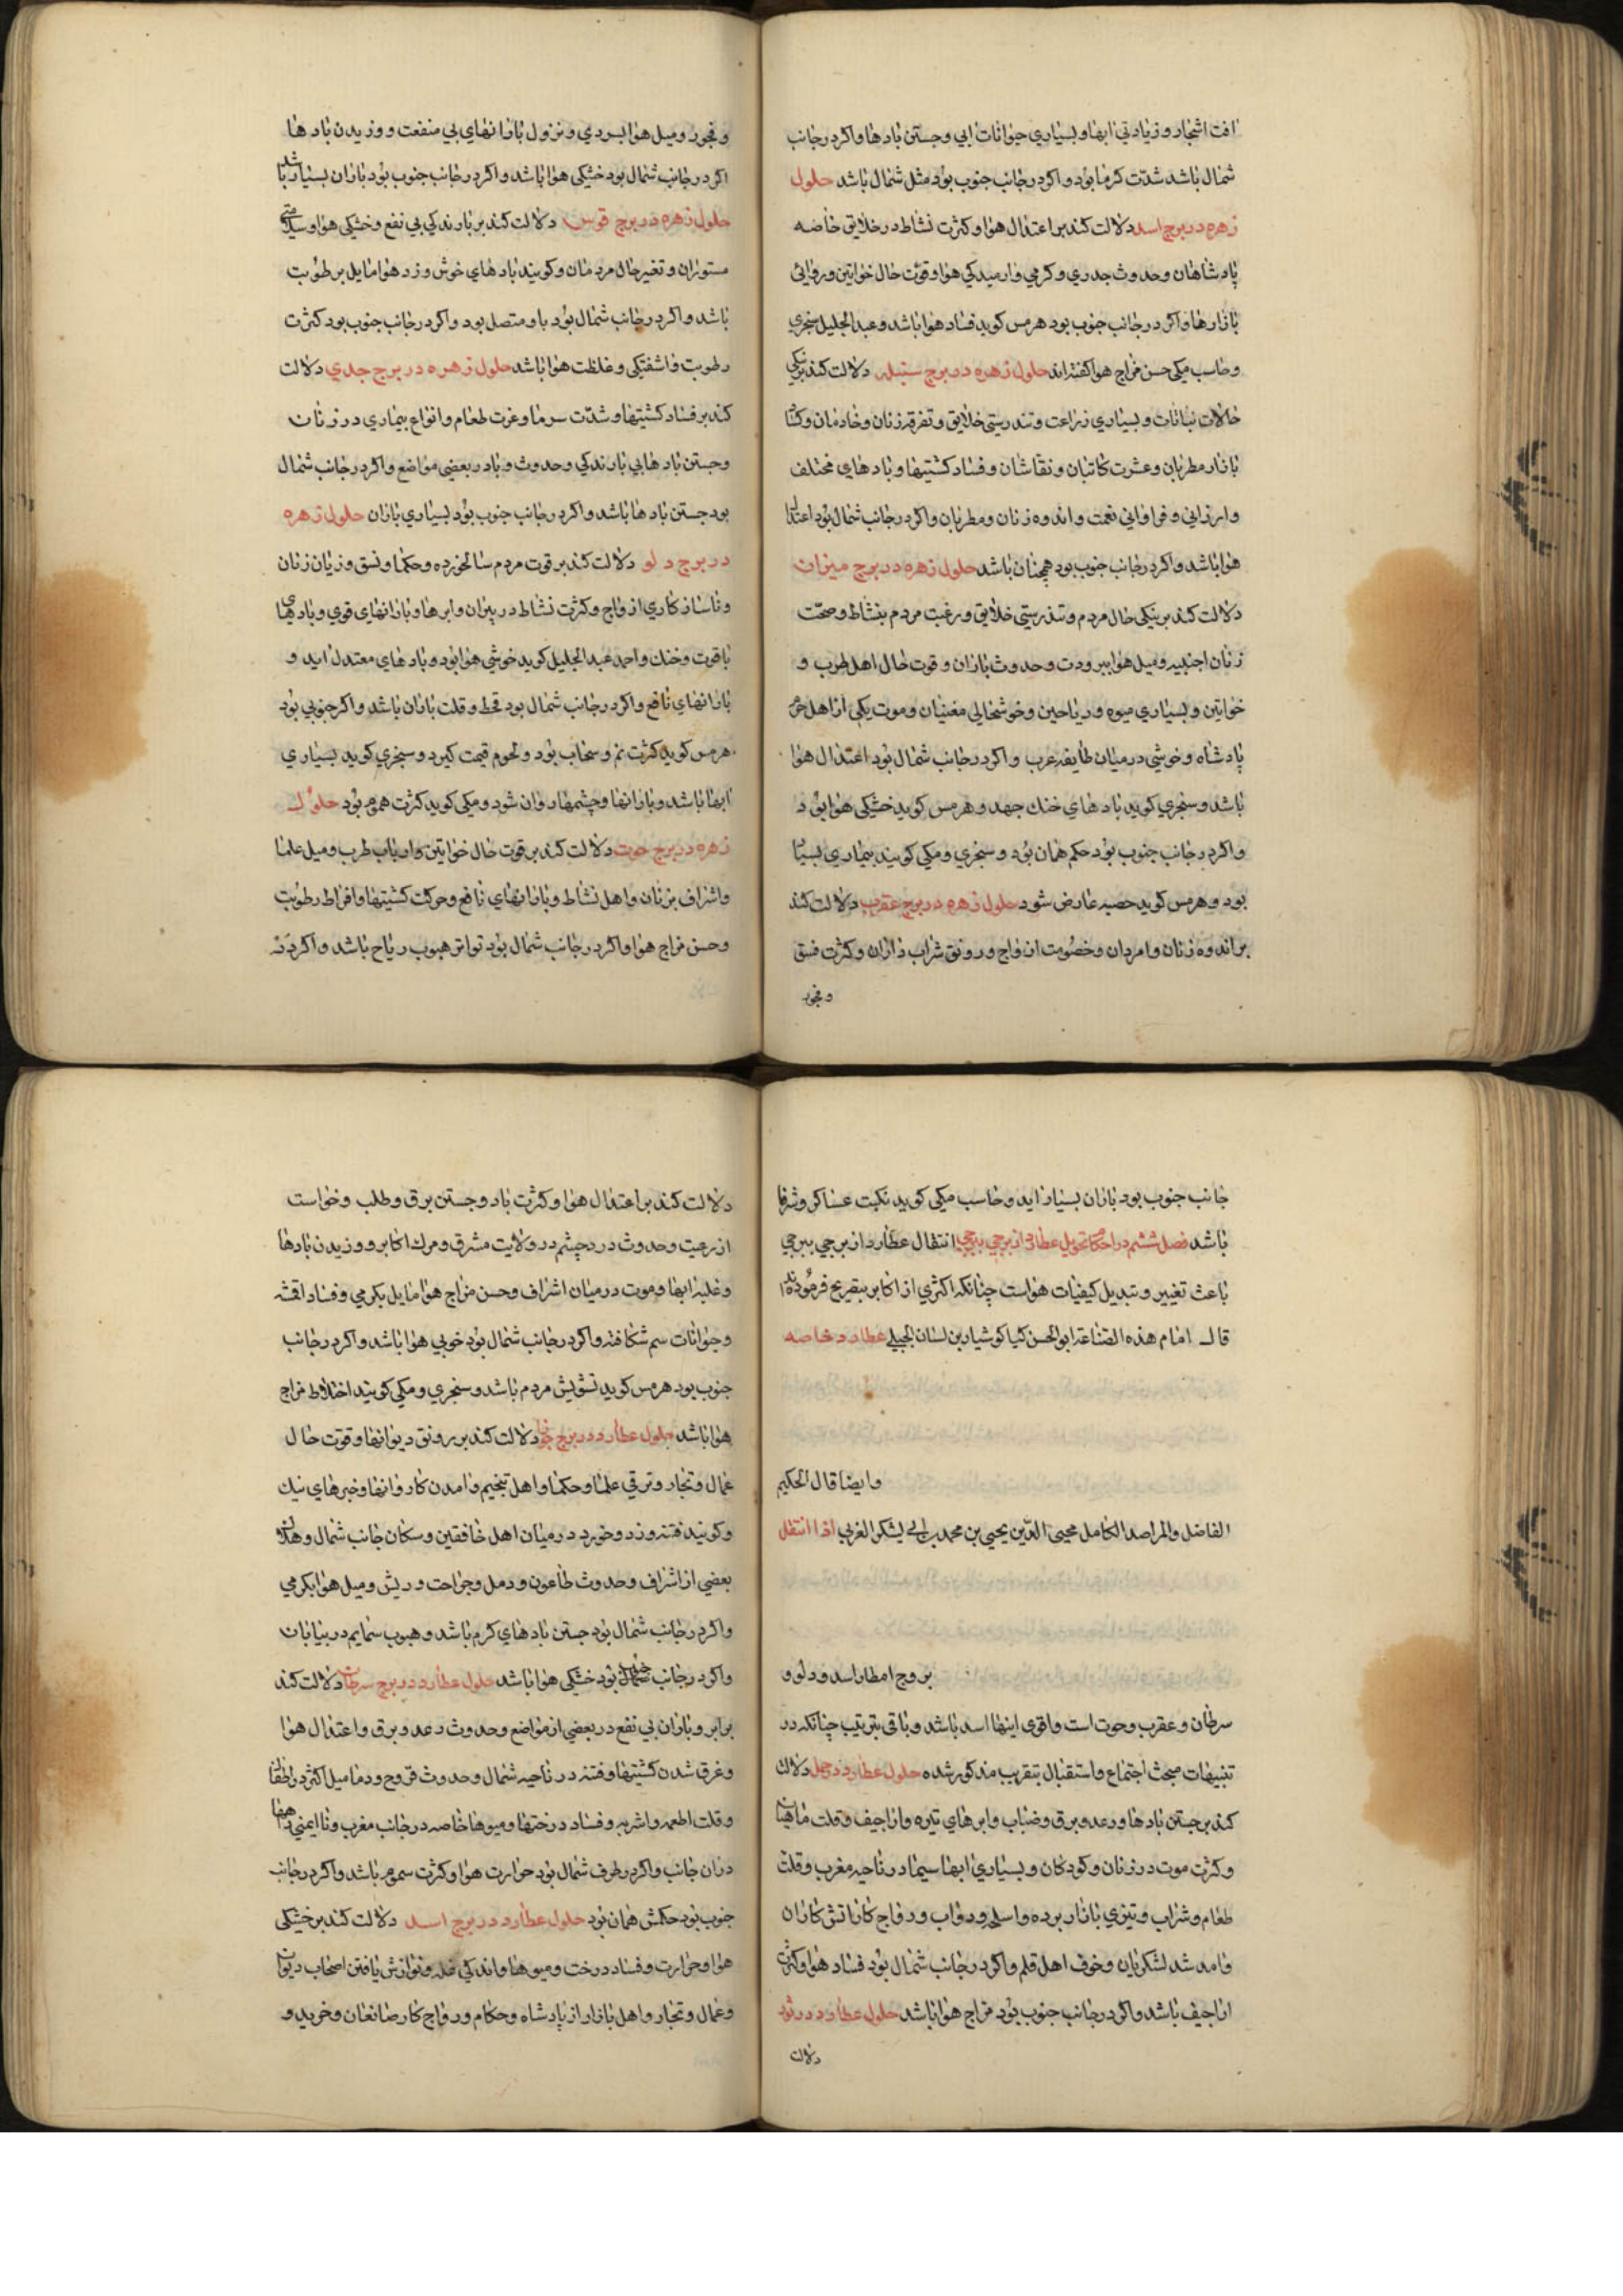 افت اشجار و زیادتی ابها و بسیاری حیوانات ابی و جستن بادها و اکر در جانب
شمال باشد شدت کرما بود و اکر در جانب جنوب بود مثل شمال باشد حلول
زهره در برج اسد دلالت کند بر اعتدال هوا و کثرت نشاط در خلایق خاصه
پادشاهان و حدوث جدری و کرمی و ارمیدکی هوا و قوت حال خواتین و روائی
بازارها و اکر در جانب جنوب بود هرمس کوید فساد هوا باشد و عبد الجلیل سنجری
و حاسب مکی حسن مزاج هوا کفته اند حلول زهره در برج سنبله دلالت کند بر نیکی
حالات نباتات و بسیاری زراعت و تندرستی خلایق و تفرقه زنان و خادمان و کساد
بازار مطربان و عشرت کاتبان و نقاشان و فساد کشتیها و بادهای مختلف
و ارزانی و فراوانی نعمت و اندوه زنان و مطربان و اکر در جانب شمال بود اعتدال
هوا باشد و اکر در جانب جنوب بود همچنان باشد حلول زهره در برج میزان
دلالت کند بر نیکی حال مردم و تندرستی خلایق و رغبت مردم بنشاط و صحت
زنان اجنبیه و میل هوا ببرودت و حدوث باران و قوت حال اهل طرب و
خواتین و بسیاری میوه و ریاحین و خوشحالی مغنیان و موت یکی از اهل حرم
پادشاه و خوشی در میان طایفه عرب و اکر در جانب شمال بود اعتدال هوا
باشد و سنجری کوید بادهای خنک جهد و هرمس کوید خشکی هوا بود
و اکر در جانب جنوب بود حکم همان بود و سنجری و مکی کویند بیماری بسیار
بود و هرمس کوید حصبه عارض شود حلول زهره در برج عقرب دلالت کند
بر اندوه زنان و امردان و خصومت ازواج و رونق شراب داران و کثرت فسق
و فجور
و فجور و میل هوا بسردی و نزول بارانهای بی منفعت و وزیدن بادها
اکر در جانب شمال بود خشکی هوا باشد و اکر در جانب جنوب بود باران بسیار باشد
حلول زهره در برج قوس دلالت کند بر بارندکی بی نفع و خشکی هوا و سلامتی
مستوران و تغیر حال مردمان و کویند بادهای خوش وزد هوا مایل برطوبت
باشد و اکر در جانب شمال بود با و متصل بود و اکر در جانب جنوب بود کثرت
رطوبت و اشفتکی و غلظت هوا باشد حلول زهره در برج جدی دلالت
کند بر فساد کشتیها و شدت سرما و عزت طعام و انواع بیماری در زنان
و جستن بادها بی بارندکی و حدوث وبا در بعضی مواضع و اکر در جانب شمال
بود جستن بادها باشد و اکر در جانب جنوب بود بسیاری باران حلول زهره
در برج دلو دلالت کند بر قوت مردم سالخورده و حکما و نسق و زیان زنان
و ناسازکاری ازواج و کثرت نشاط در پیران و ابرها و بارانهای قوی و بادهای
با قوت و خنک و احمد عبد الجلیل کوید خوشی هوا بود و بادهای معتدل اید و
بارانهای نافع و اکر در جانب شمال بود قحط و قلت باران باشد و اکر جنوبی بود
هرمس کوید کثرت نم و سحاب بود و لحوم قیمت کیرد و سنجری کوید بسیاری
ابها باشد و بارانها و چشمها روان شود و مکی کوید کثرت هموم بود حلول
زهره در برج حوت دلالت کند بر قوت حال خواتین و ارباب طرب و میل علما
و اشراف بزنان و اهل نشاط و بارانهای نافع و حرکت کشتیها و افراط رطوبت
و حسن مزاج هوا و اکر در جانب شمال بود تواتر هبوب ریاح باشد و اکر در
جانب جنوب بود باران بسیار اید و حاسب مکی کوید نکبت عساکر و شرفا
باشد فصل ششم در احکام تحویل عطارد از برجی ببرجی انتقال عطارد از برجی ببرجی
باعث تغییر و تبدیل کیفیات هواست چنانکه اکثری از اکابر بتصریح فرموده اند
قال امام هذه الصناعة ابو الحسن کیا کوشیار بن لبان الجیلی عطارد خاصه
و ایضا قال الحکیم
الفاضل والمراصد الکامل محیی الدین یحیی بن محمد بن ابی لشکر المغربی اذا انتقل
بروج امطار اسد و دلو و
سرطان و عقرب و حوت است و اقوی اینها اسد باشد و باقی بترتیب چنانکه در
تنبیهات مبحث اجتماع و استقبال بتقریب مذکور شده حلول عطارد در حمل دلالت
کند بر جستن بادها و رعد و برق و ضباب و ابرهای تیره و اراجیف و قلت ماهیان
و کثرت موت در زنان و کودکان و بسیاری ابها سیما در ناحیه مغرب و قلت
طعام و شراب و تیزی بازار برده و اسلحه و دواب و رواج کار اتش کاران
و امد شد لشکریان و خوف اهل قلم و اکر در جانب شمال بود فساد هوا و کثرت
اراجیف باشد و اکر در جانب جنوب بود مزاج هوا باشد حلول عطارد در ثور
دلالت
دلالت کند بر اعتدال هوا و کثرت باد و جستن برق و طلب و خواست
از رعیت و حدوث درد چشم در ولایت مشرق و مرک اکابر و وزیدن بادها
و غلبه ابها و موت در میان اشراف و حسن مزاج هوا مایل بکرمی و فساد اقمشه
و حیوانات سم شکافته و اکر در جانب شمال بود خوبی هوا باشد و اکر در جانب
جنوب بود هرمس کوید تشویش مردم باشد و سنجری و مکی کویند اختلاط مزاج
هوا باشد حلول عطارد در برج جوزا دلالت کند بر رونق دیوانها و قوت حال
عمال و تجار و ترقی علما و حکما و اهل تنجیم و امدن کاروانها و خبرهای نیک
و کویند فتنه و زد و خورد در میان اهل خافقین و سکان جانب شمال و هلاک
بعضی از اشراف و حدوث طاعون و دمل و جراحت و ریش و میل هوا بکرمی
و اکر در جانب شمال بود جستن بادهای کرم باشد و هبوب سمایم در بیابان
و اکر در جانب جنوب بود خشکی هوا باشد حلول عطارد در برج سرطان دلالت کند
بر ابر و باران بی نفع در بعضی از مواضع و حدوث رعد و برق و اعتدال هوا
و غرق شدن کشتیها و فتنه در ناحیه شمال و حدوث قروح و دمامیل اکثر در اطفال
و قلت اطعمه و اشربه و فساد درختها و میوها خاصه در جانب مغرب و نا ایمنی راهها
دران جانب و اکر در طرف شمال بود حرارت هوا و کثرت سموم باشد و اکر در جانب
جنوب بود حکمش همان بود حلول عطارد در برج اسد دلالت کند بر خشکی
هوا و حرارت و فساد درخت و میوها و اندکی غله و نوازش یافتن اصحاب دیوان
و عمال و تجار و اهل بازار از پادشاه و حکام و رواج کار صانعان و خرید و